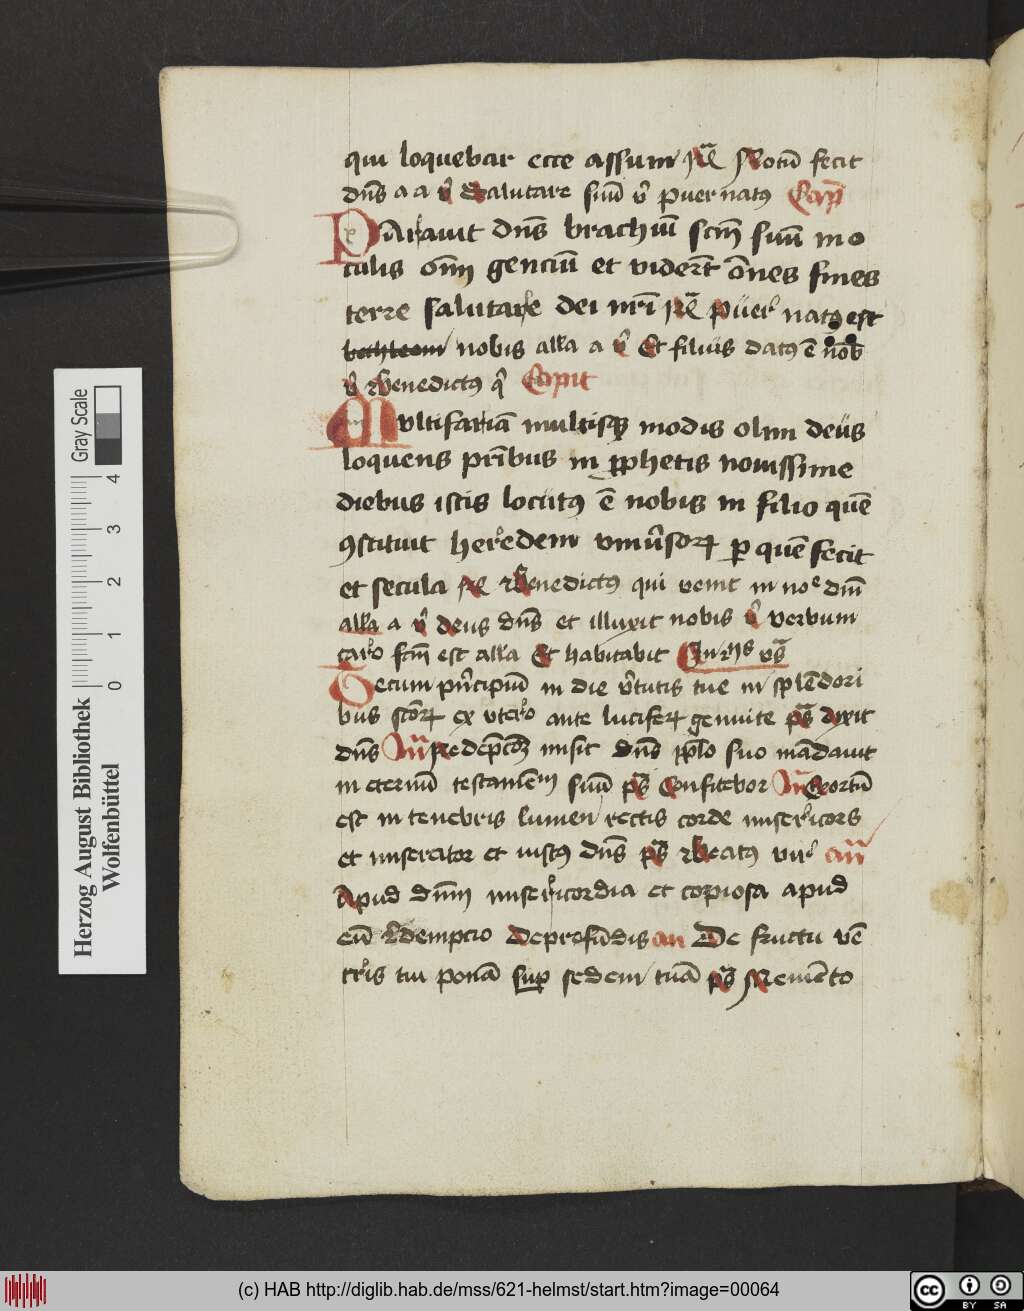 qui loquebar ecce assum R̄e Notū fecit
dn̄s a a v̉ Salutare suū v̉ puer natꝯ Cap̄
PArauit dn̄s brachiū scm̄ suū in o
culis om̄ genciū et viderūt o͞nes fines
terre salutare dei nr̄i R̄e puer natꝯ est
bethleem nobis all'a a v̉ Et filius datꝯ ē nob̄
v̉ Benedictꝯ q̉ Capit
MUltifariā multisqꝫ modis olim deus
loquens pr̄ibus in ꝓphetis nouissime
diebus istis locutꝯ ē nobis in filio quē
ꝯstituit heredem vniu̓soꝝ ꝑ quē fecit
et secula Re Benedictꝯ qui venit in noe dn̄i
all'a a v̉ deus dn̄s et illuxit nobis v̉ verbum
caro fcm̄ est all'a Et habitabit vs̄
Tecum pn̓cipiū in die v̓tutis tue in splēdori
bus sc̄oꝝ ex vtero ante luciferꝝ genui te ps̄ dixit
dn̄s Redēpc̄oꝫ misit dn̄s pp̄lo suo mādauit
in eternū testamēm suū ps̄ Confitebor Exortū
est in tenebris lumen rectis corde misericors
et miserator et iustꝯ dn̄s ps̄ Beatꝯ vir an̄
Apud dn̄m misericordia et copiosa apud
eū redempcio De profūdis an De fructu vē
tris tui ponā suꝑ sedem tuā ps̄ Memēto
Gray Scale
0 1 2 3 4
Herzog August Bibliothek
Wolfenbüttel
(c) HAB http://diglib.hab.de/mss/621-helmst/start.htm?image=00064
cc BY SA